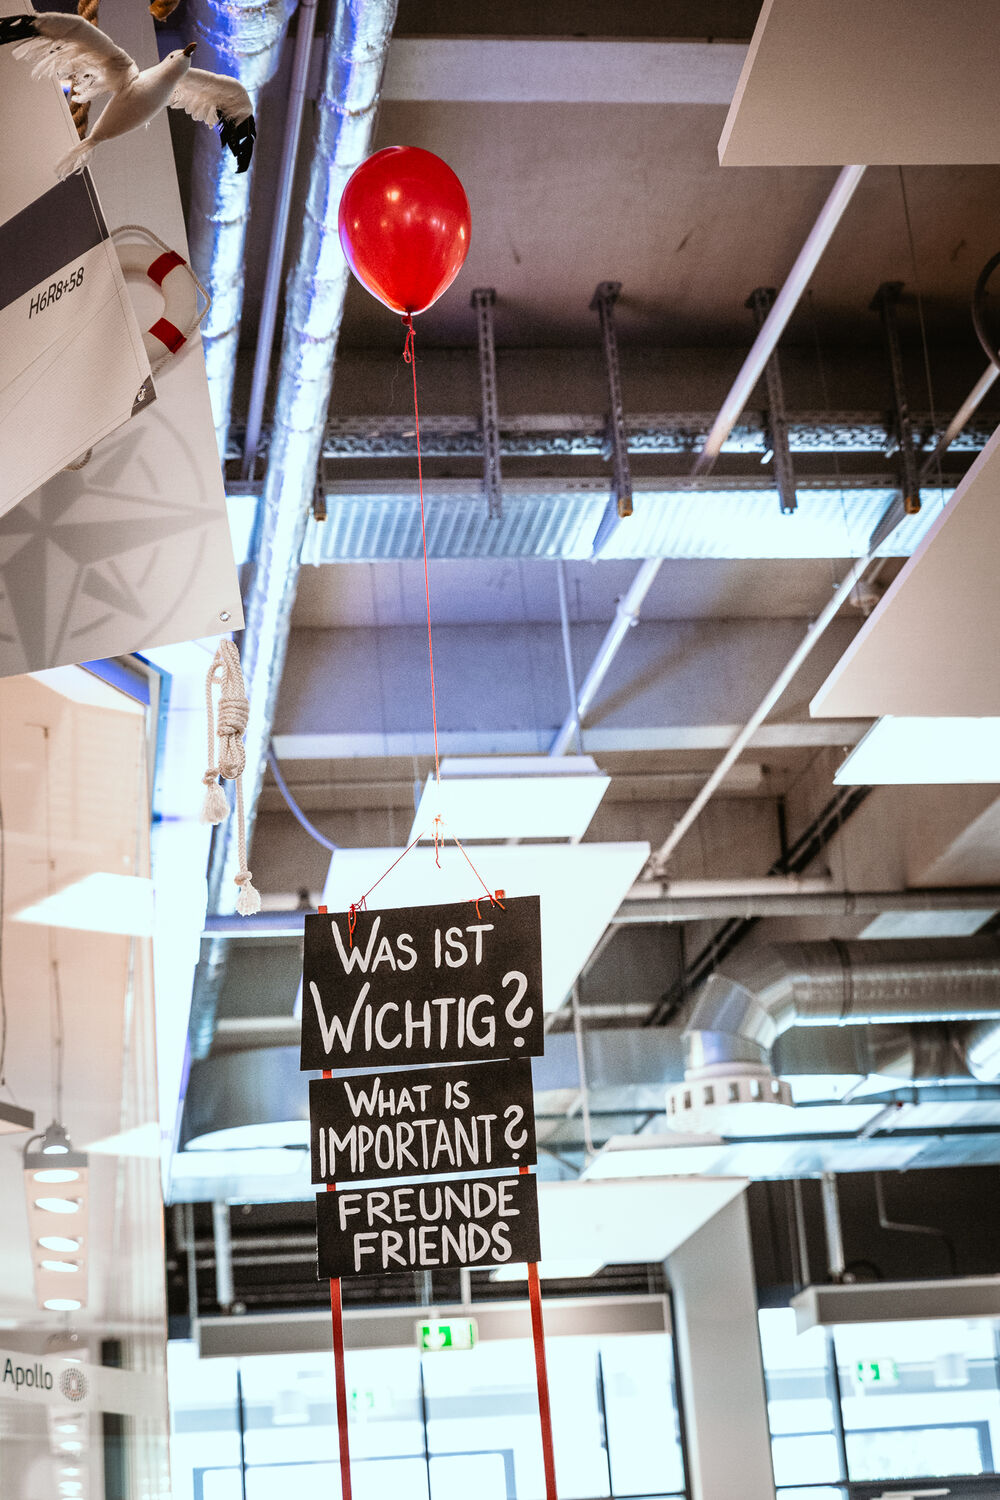 H6R8+58
WAS IST
WICHTIG?
WHAT IS
IMPORTANT?
FREUNDE
FRIENDS
Apollo